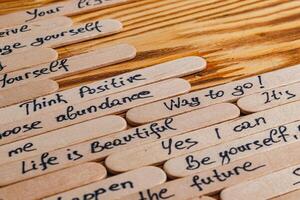 Your li
eive
ge yourself
Yourself
Think Positive
oose abundance
me
Way to go!
It's
Life is Beautiful
Yes I can
Be yourself
happen
the future